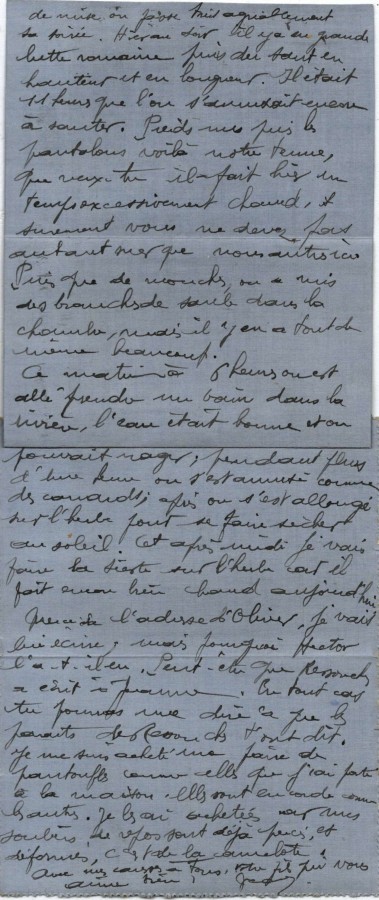 de nuit on passe très agréablement
sa soirée. Hier au soir il y a eu grande
lutte romaine puis des saut en
hauteur et en longueur. Il était
11 heures que l'on s'amusait encore
à sauter. Pieds nus puis les
pantalons voilà notre tenue,
que veux-tu il fait hier un
temps excessivement chaud, et
surement vous ne devez pas
autant suer que nous autres ici
Puis que de mouches, on a mis
des branches de saule dans la
chambre, mais il y en a tout de
même beaucoup.
Ce matin à 8 heures on est
allé prendre un bain dans la
rivière, l'eau était bonne et on
pouvait nager; pendant plus
d'une heure on s'est amusé comme
des canards; après on s'est allongé
sur l'herbe pour se faire sécher
au soleil. Cet après midi je vais
faire la sieste sur l'herbe car il
fait encore bien chaud aujourd'hui
l'adresse d'Olivier, je vais
lui écrire, mais pourquoi Hector
l'a-t-il eu. Peut-être que
a écrit à Jeanne. En tout cas
tu pourras me dire ce que les
parents de t'ont dit.
Je me suis acheté une paire de
pantoufles comme celles que j'ai porté
à la maison. Elles sont en corde comme
Je les ai achetées car mes
souliers de repos sont déjà percés, et
déformés, c'est de la camelote!
Avec mes à Tous, votre fils qui vous
aime bien!